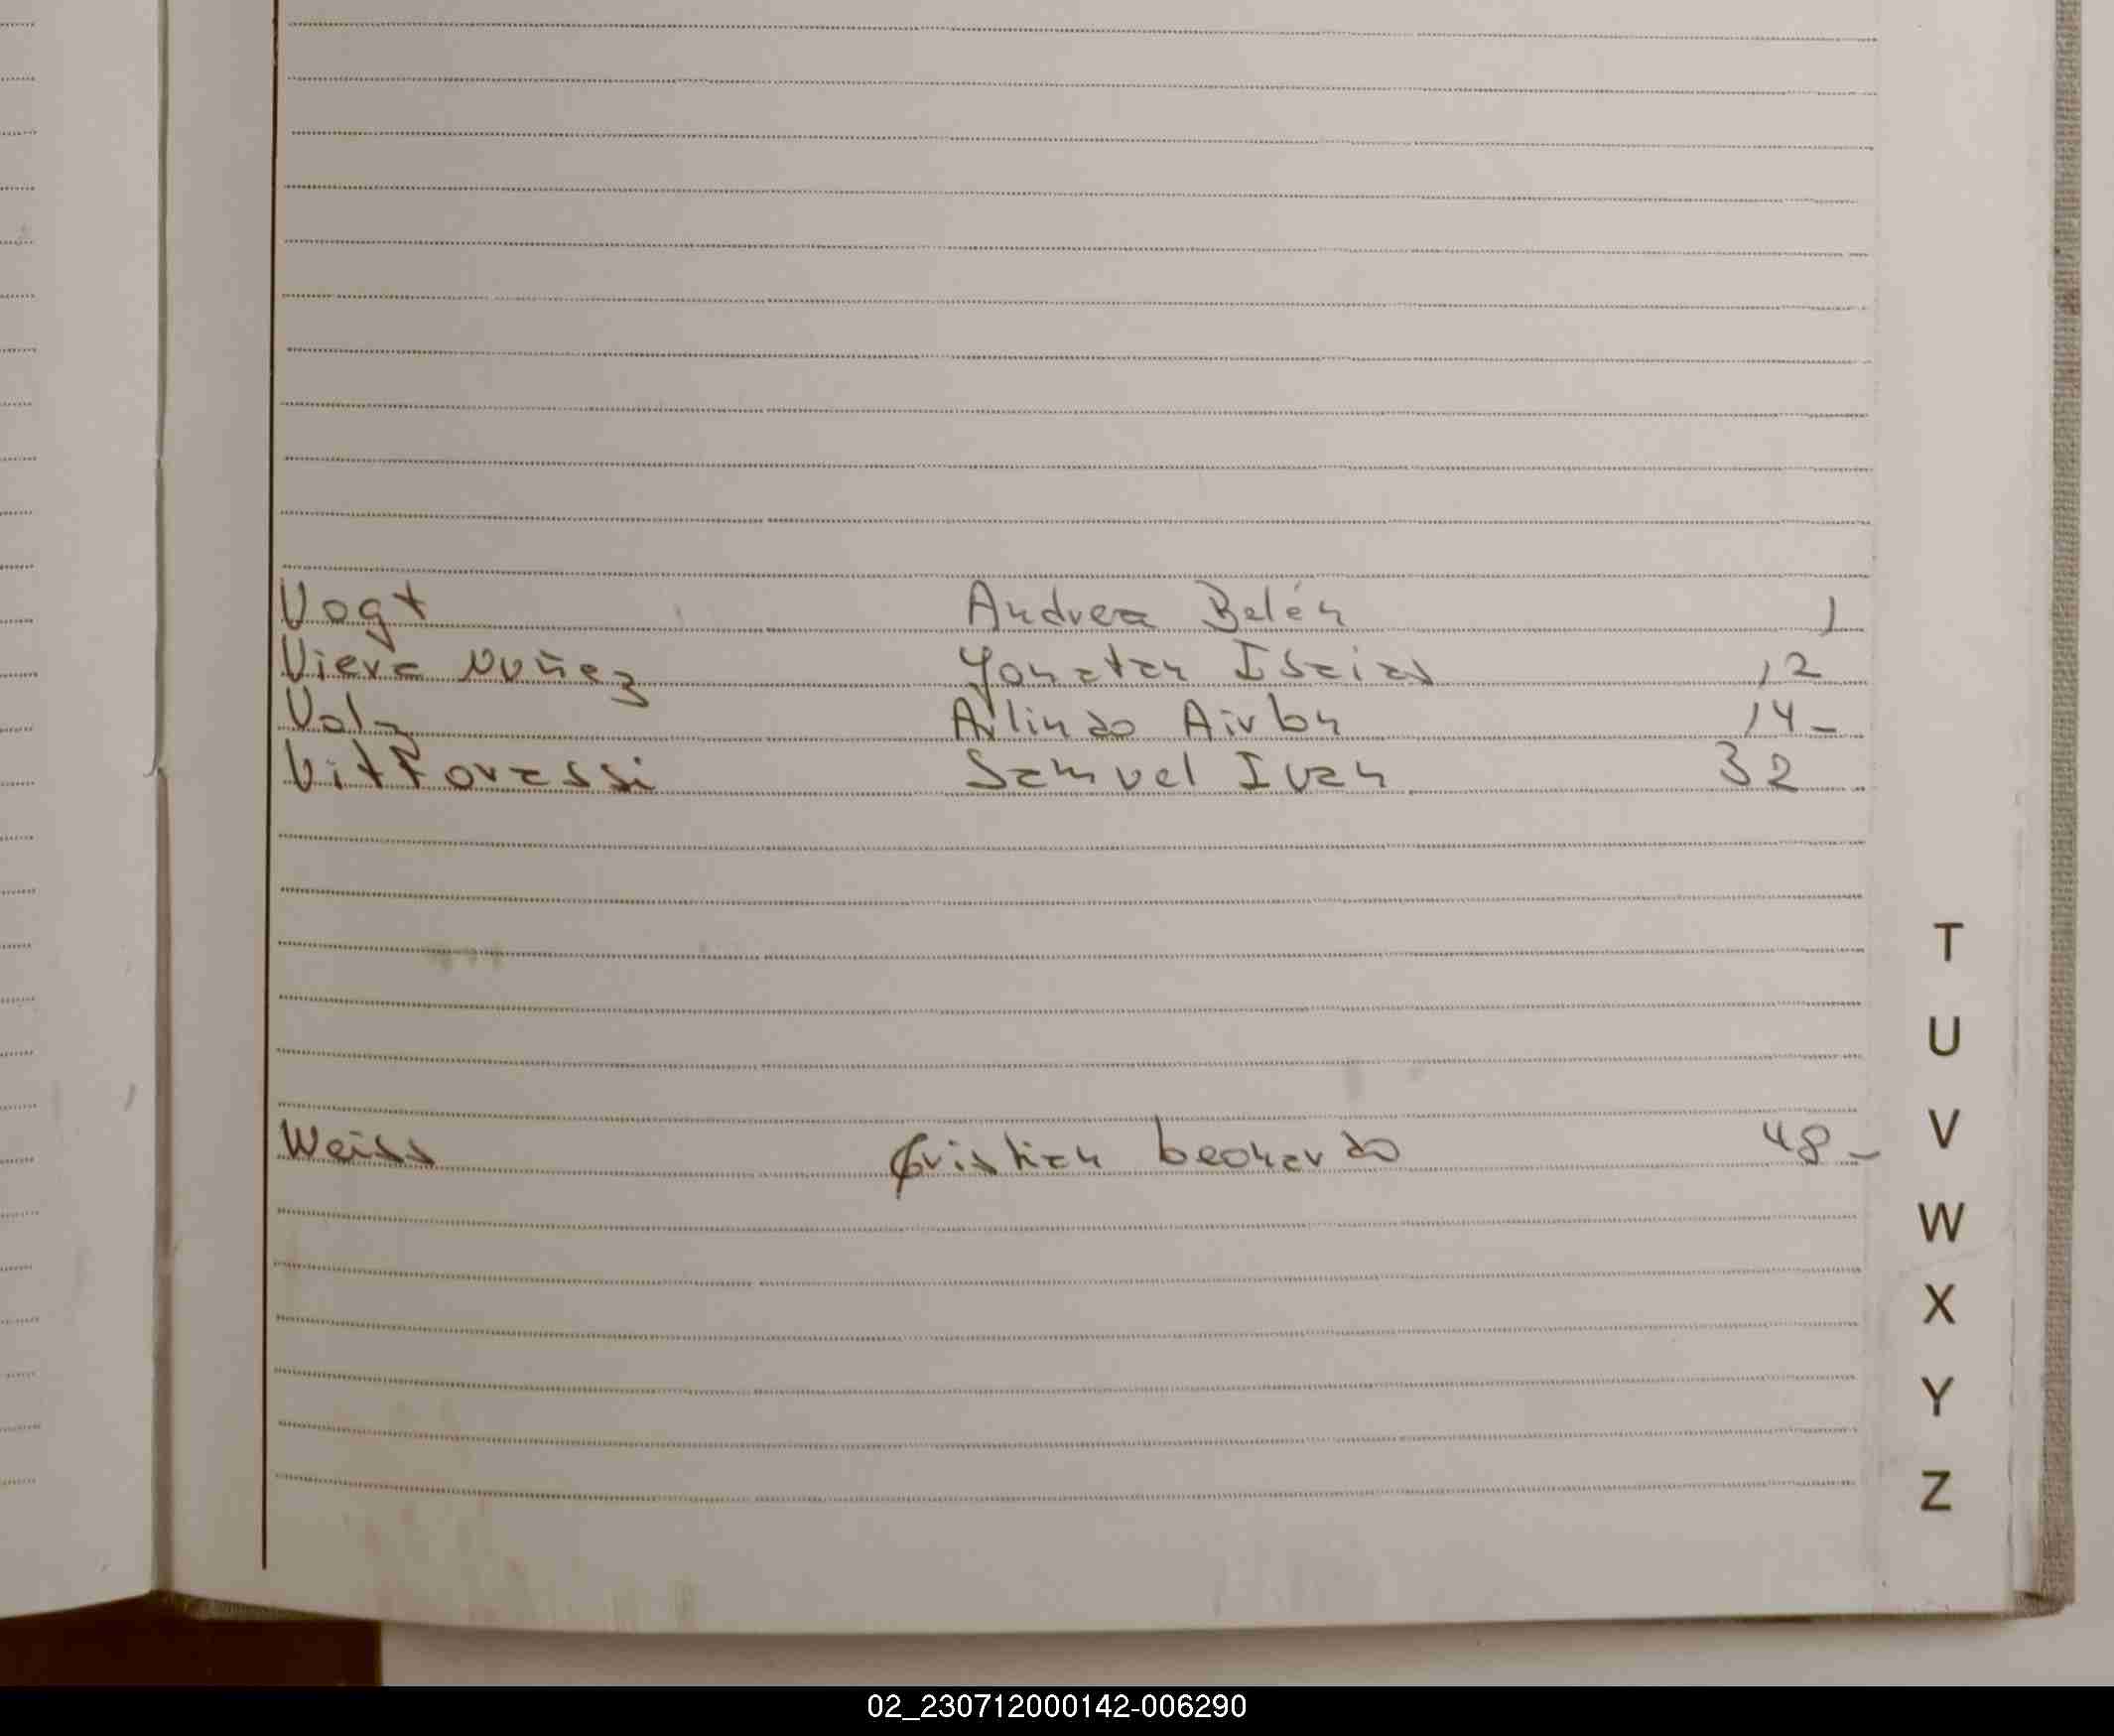 Vogt Andrea Belén 1
Viera Nuñez Yonatan Isaias 12
Volz Arlindo Airton 14-
Vitforassi Samuel Ivan 32
T
U
V
Weiss Cristian Leonardo 48-
W
X
Y
Z
02_230712000142-006290